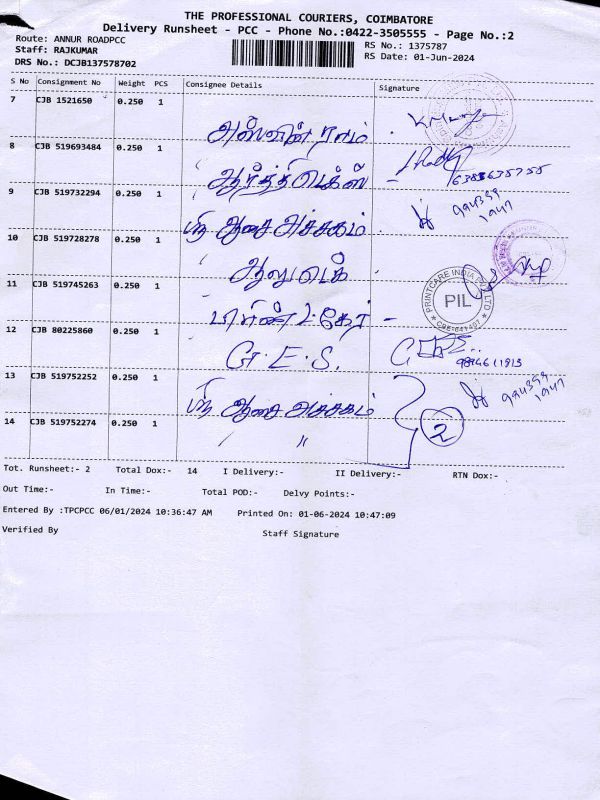 THE PROFESSIONAL COURIERS, COIMBATORE
Delivery Runsheet - PCC - Phone No.:0422-3505555 - Page No.:2
Route: ANNUR ROADPCC
RS No.: 1375787
Staff: RAJKUMAR
RS Date: 01-Jun-2024
DRS No.: DCJB137578702
S No Consignment No Weight PCS Consignee Details Signature
7 CJB 1521650 0.250 1
8 CJB 519693484 0.250 1
6383635755
9 CJB 519732294 0.250 1
ஸ்ரீ ஆசை அச்சகம்
994359
1947
10 CJB 519728278 0.250 1
11 CJB 519745263 0.250 1
PRINTCARE INDIA PVT LTD
PIL
CBE-641497
12 CJB 80225860 0.250 1
G.E.S.
13 CJB 519752252 0.250 1
ஸ்ரீ ஆசை அச்சகம்
994359
1947
14 CJB 519752274 0.250 1
" "
2
Tot. Runsheet:- 2 Total Dox:- 14 I Delivery:- II Delivery:- RTN Dox:-
Out Time:- In Time:- Total POD:- Delvy Points:-
Entered By :TPCPCC 06/01/2024 10:36:47 AM Printed On: 01-06-2024 10:47:09
Verified By Staff Signature